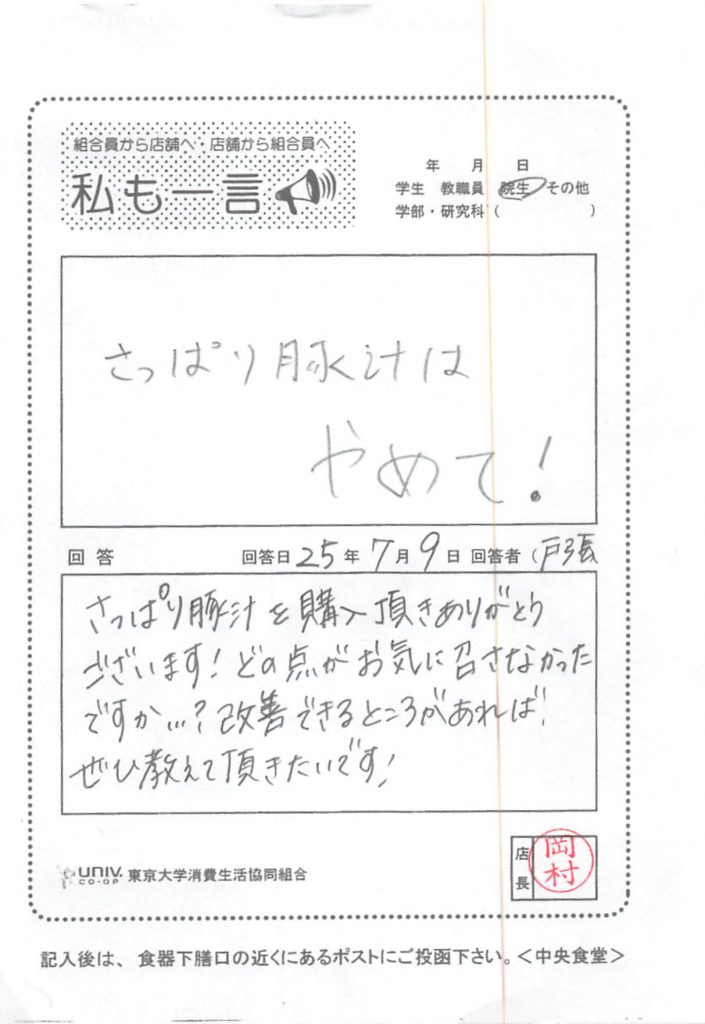 組合員から店舗へ・店舗から組合員へ
私も一言
年 月 日
学生 教職員 院生 その他
学部・研究科 ( )
さっぱり豚汁は
やめて!
回答 回答日 25年 7月 9日 回答者 (戸張
さっぱり豚汁を購入頂きありがとう
ございます!どの点がお気に召さなかった
ですか…?改善できるところがあれば、
ぜひ教えて頂きたいです!
UNIV. CO-OP 東京大学消費生活協同組合
店長 岡村
記入後は、食器下膳口の近くにあるポストにご投函下さい。<中央食堂>